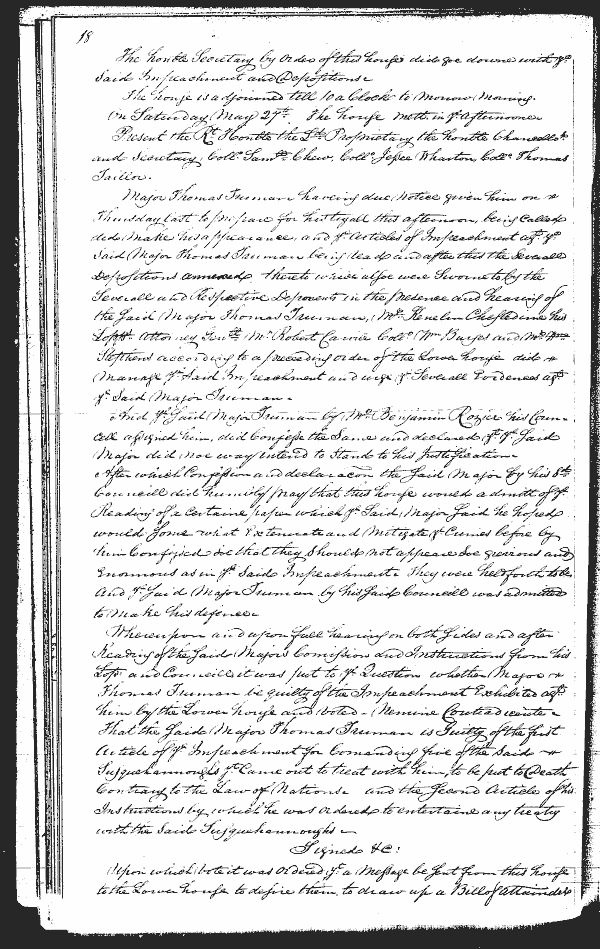 18
The honble Secretary by order of this house did goe downe with ye
Said Impeachment and Depositions.
The house is adjourned till 10 a Clock to Morrow Morning.
On Saturday May 27th. The house mett in ye afternoone
Present the Rt Honble the Ld Proprietary the honble Chancellr
and Secretary, Collo Samll Chew, Collo Jesse Wharton Collo Thomas
Taillor.
Major Thomas Truman haveing due notice given him on
Thursday last to prepare for his tryall this afternoon, being called
did make his appearance, and ye Articles of Impeachment agt ye
Said Major Thomas Truman being read and after this the Severall
Depositions annexed thereto which alsoe were Sworne to by the
Severall and Respective Deponents in the presence and hearing of
the Said Major Thomas Truman, Mr Kenelm Cheseldine his
Lopps Attorney Genll Mr Robert Carvile Collo Wm Burges and Mr Wm
Stephens according to a preceeding order of the Lower house did
Manage ye Said Impeachment and urge ye Severall Evidences agt
ye Said Major Truman.
And ye Said Major Truman by Mr Benjamin Rozer his Coun-
cell assigned him, did Confesse the Same and declared yt ye Said
Major did noe way intend to Stand to his Justification
After which Confession and declaracon the Said Major by his Sd
Councill did humbly pray that this house would admitt of ye
Reading of a certaine paper which ye Said Major Said he hoped
would Some what Extenuate and Mitigate ye Crimes before by
him Confessed soe that they Should not appeare soe grevious and
Enormous as in ye Said Impeachment They were Sett forth to be
And ye Said Major Truman by his Said Councill was admitted
to make his defence.
Whereupon and upon full hearing on both Sides and after
Reading of the Said Majors Comission and Instructions from his
Lopp and Councill it was put to ye Question whether Major
Thomas Truman be guilty of the Impeachment Exhibited agt
him by the Lower house and voted Nemine Contradicente
That the Said Major Thomas Truman is Guilty of the first
Article of ye Impeachment for Comanding five of the Said
Susquehannoughs yt Came out to treat with him, to be put to Death
Contrary to the Law of Nations and the Second Article of his
Instructions by which he was ordered to entertaine any treaty
with the Said Susquehannoughs
Signed &c:
Upon which vote it was ordered yt a Message be Sent from this house
to the Lower house to desire them to draw up a Bill of Attainder